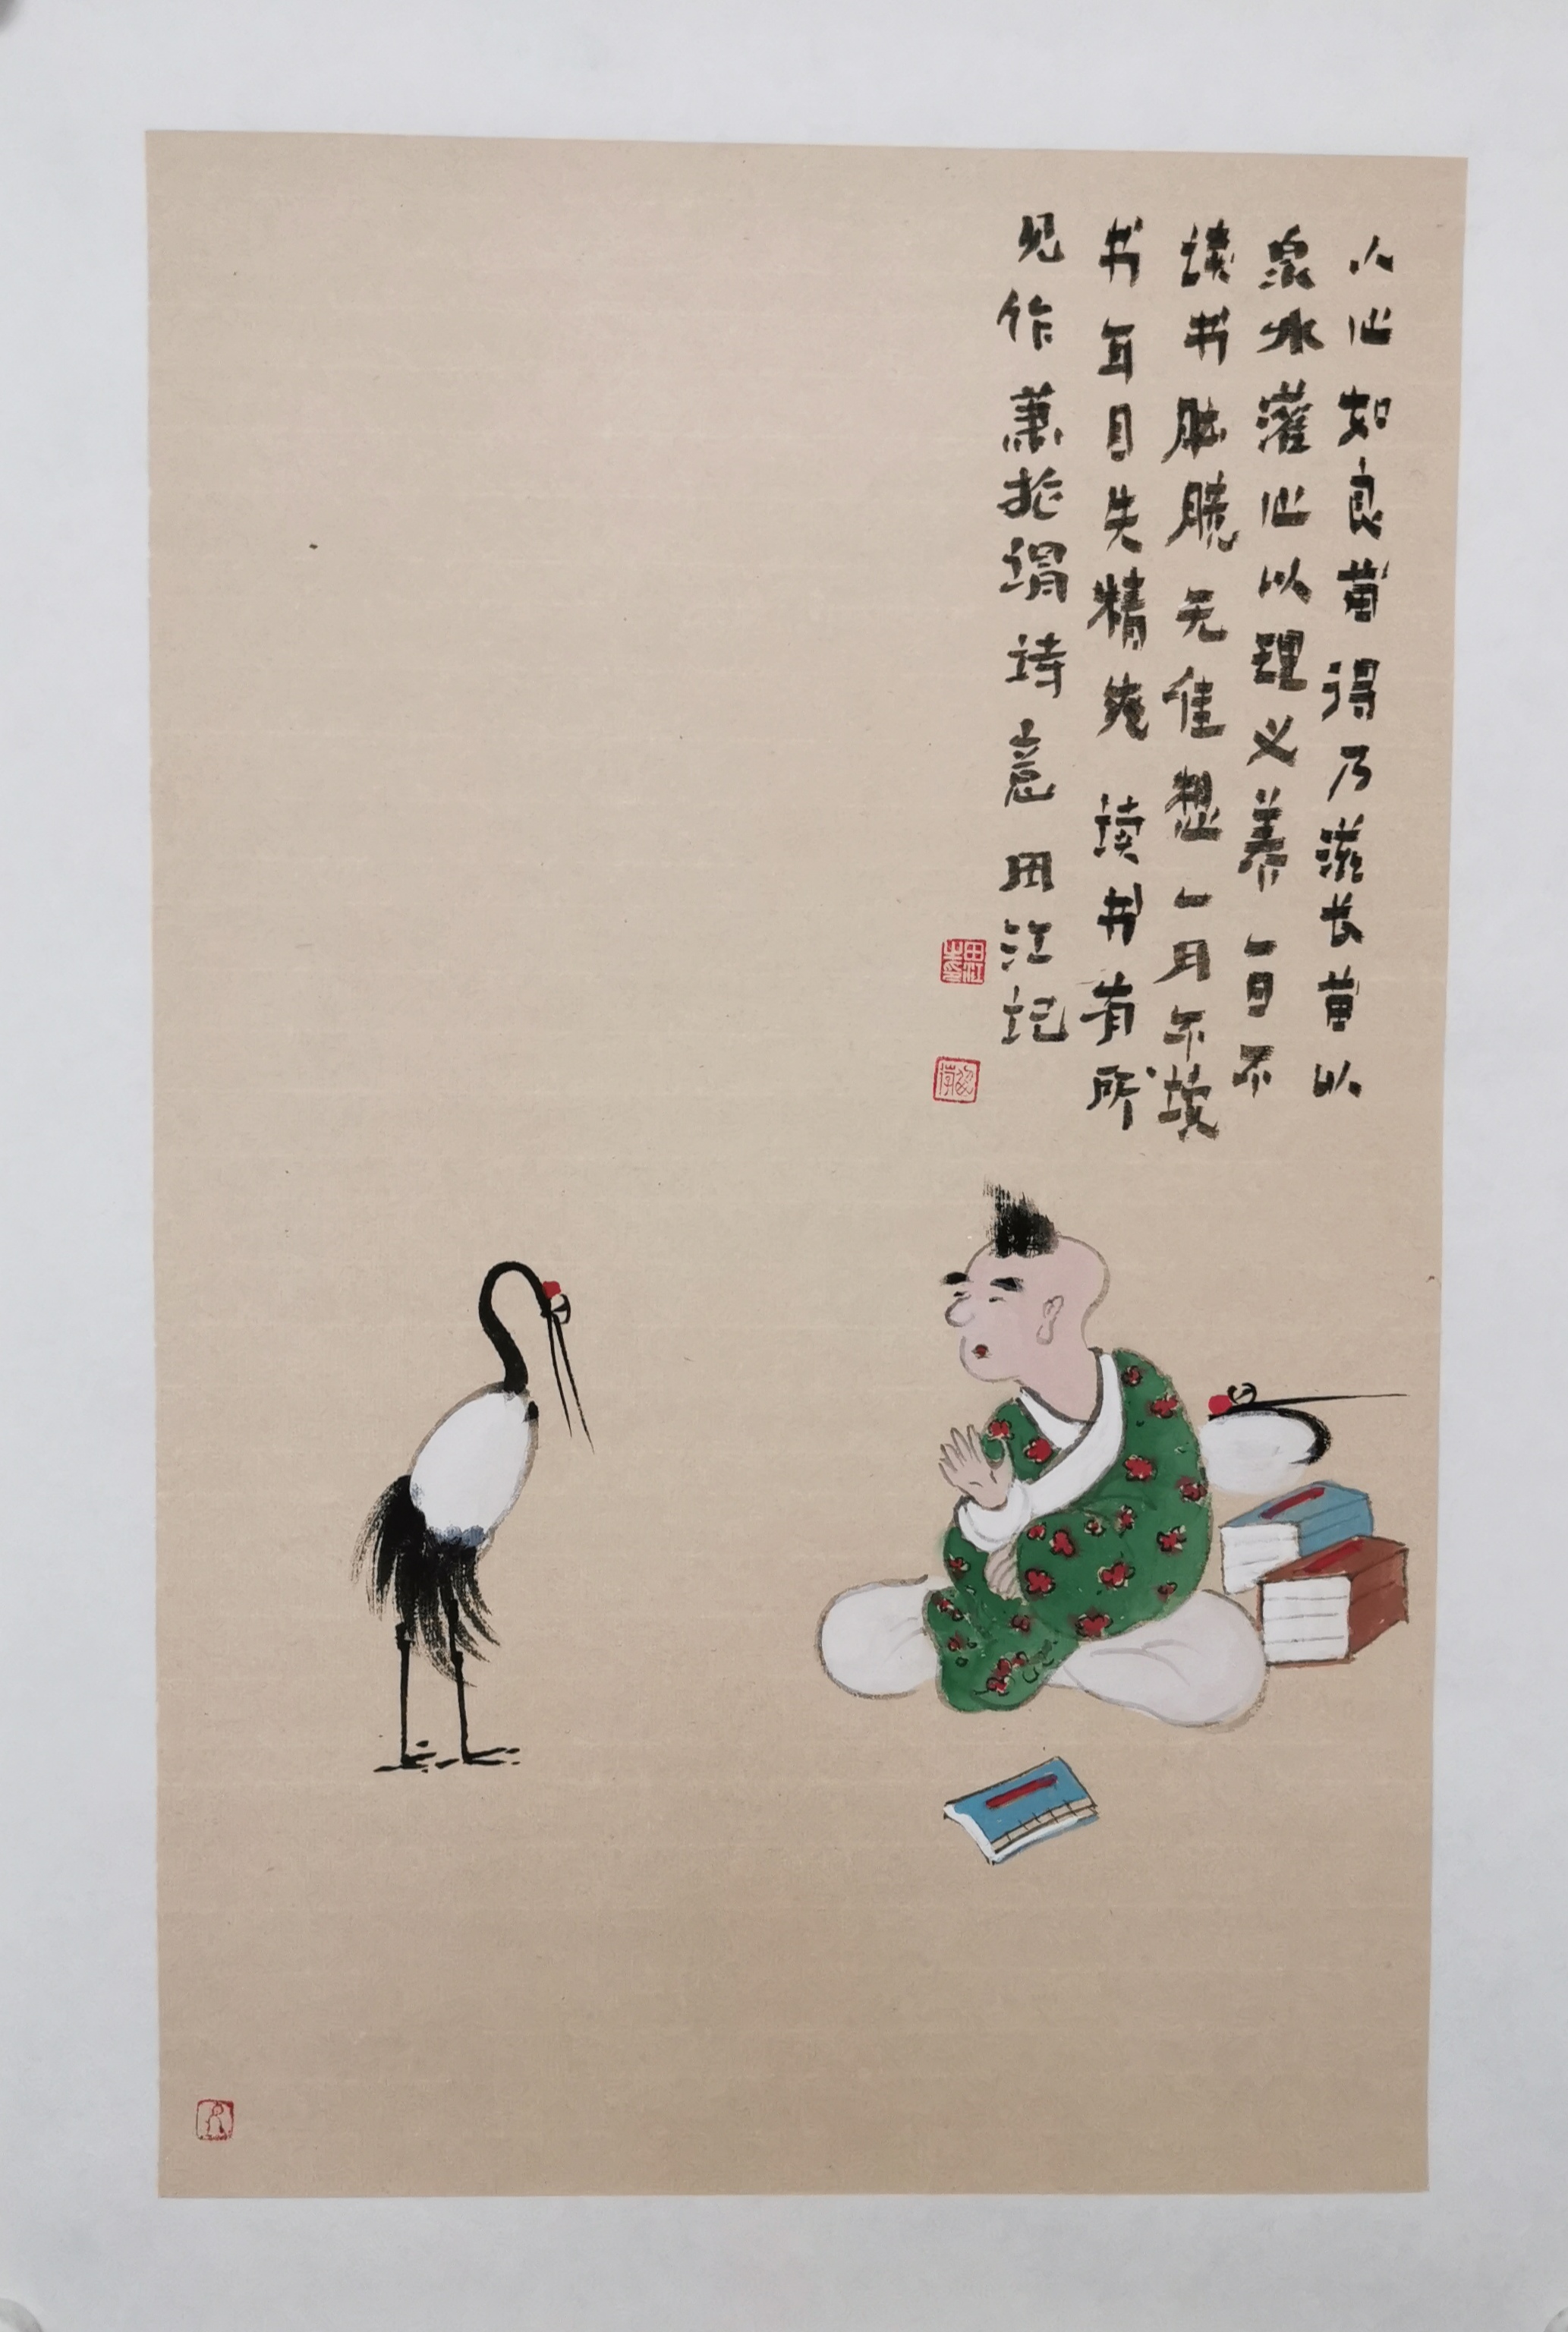 人心如良苗得乃滋长苗以
泉水灌心以理义养一日不
读书胸臆无佳想一月不读
书耳目失精爽读书有所
见作萧抡谓诗意田江记
田江之印